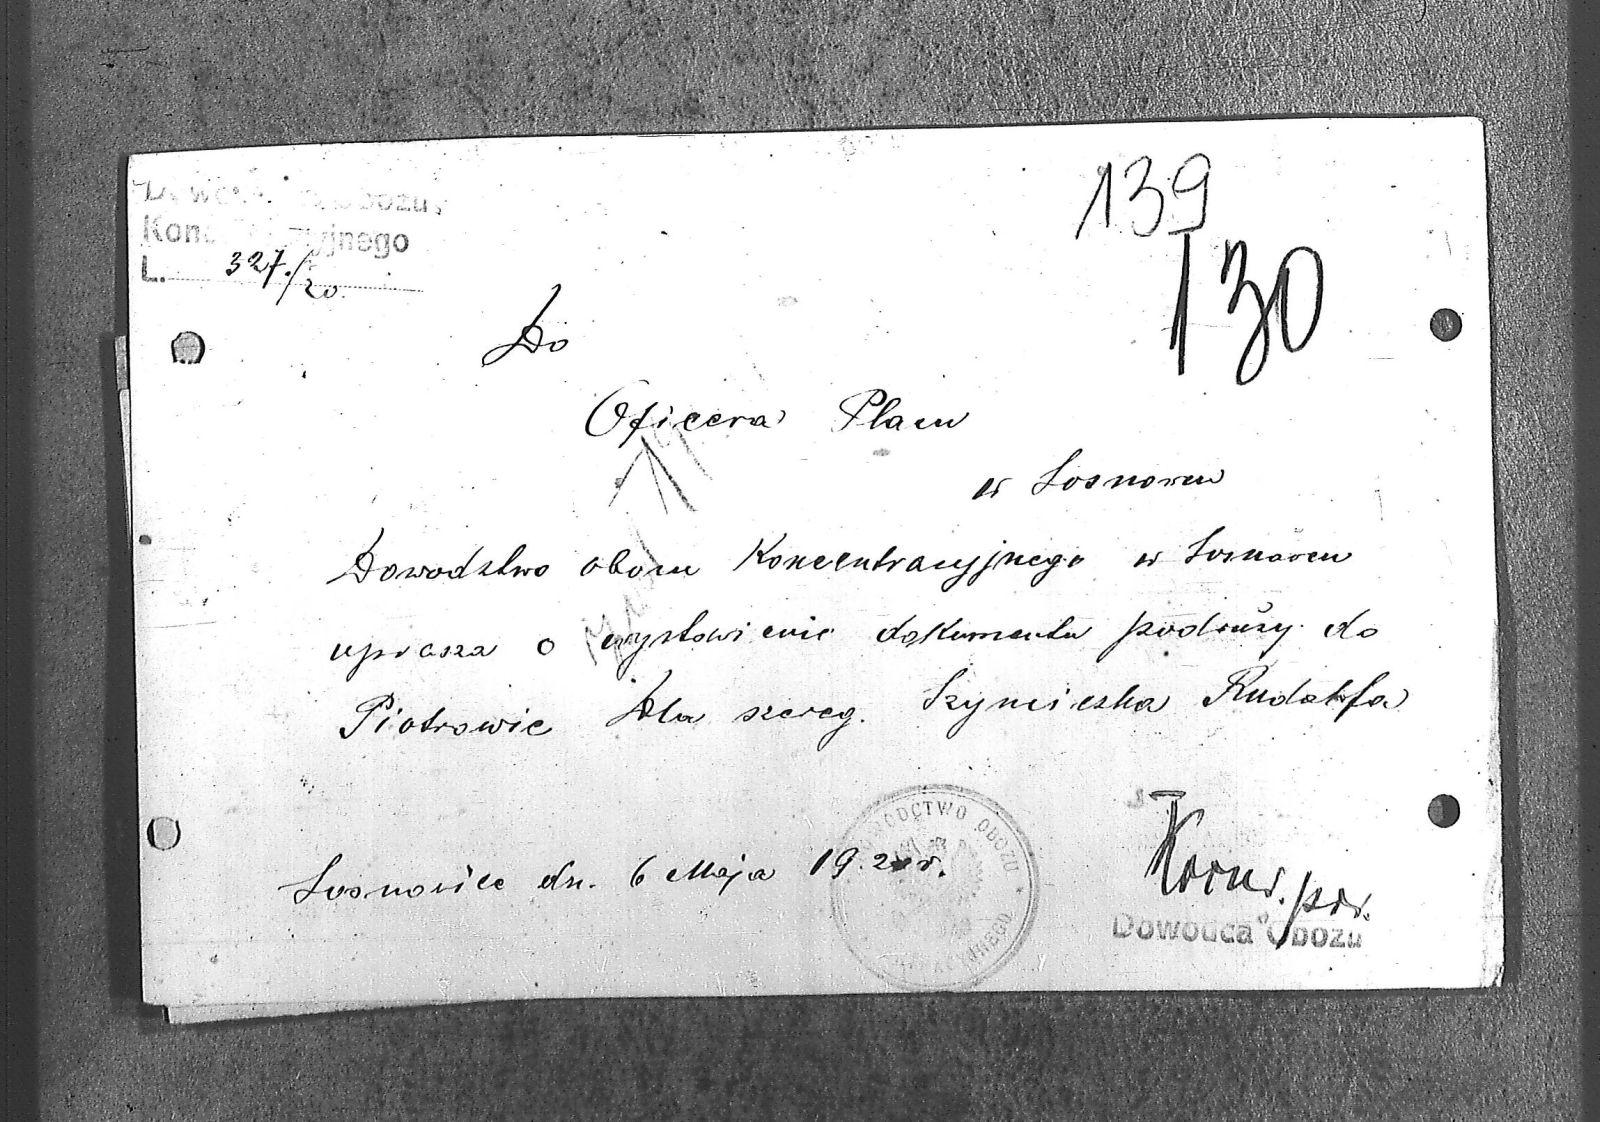 Obozu
Konc yjnego
L. 327./20.
139
130
Do
Oficera Placu
w Sosnowcu
Dowodztwo obozu Koncentracyjnego w Sosnowcu
uprasza o wystawienie dokumentu podruży do
Piotrowic dla szereg. Szymiczka Rudolfa
Sosnowiec dn. 6 Maja 1920r.
OBOZU
Dowodca Obozu